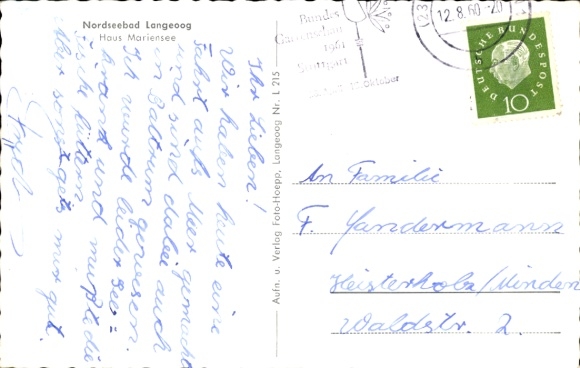 Nordseebad Langeoog
Haus Mariensee
Ihr Lieben!
Wir haben heute eine
Fahrt aufs Meer gemacht
und sind dabei auch
in Baltrum gewesen.
Ich wurde leider see=
krank und mußte die
Fische füttern.
Aber sonst gehts mir gut.
Aufn. u. Verlag Foto-Hoepp, Langeoog Nr. L 215
Bundes
Gartenschau
1961
Stuttgart
Oktober
12.8.60-20
DEUTSCHE BUNDESPOST
10
An Familie
F. Vandermann
Heisterholz/Minden
Waldstr. 2.